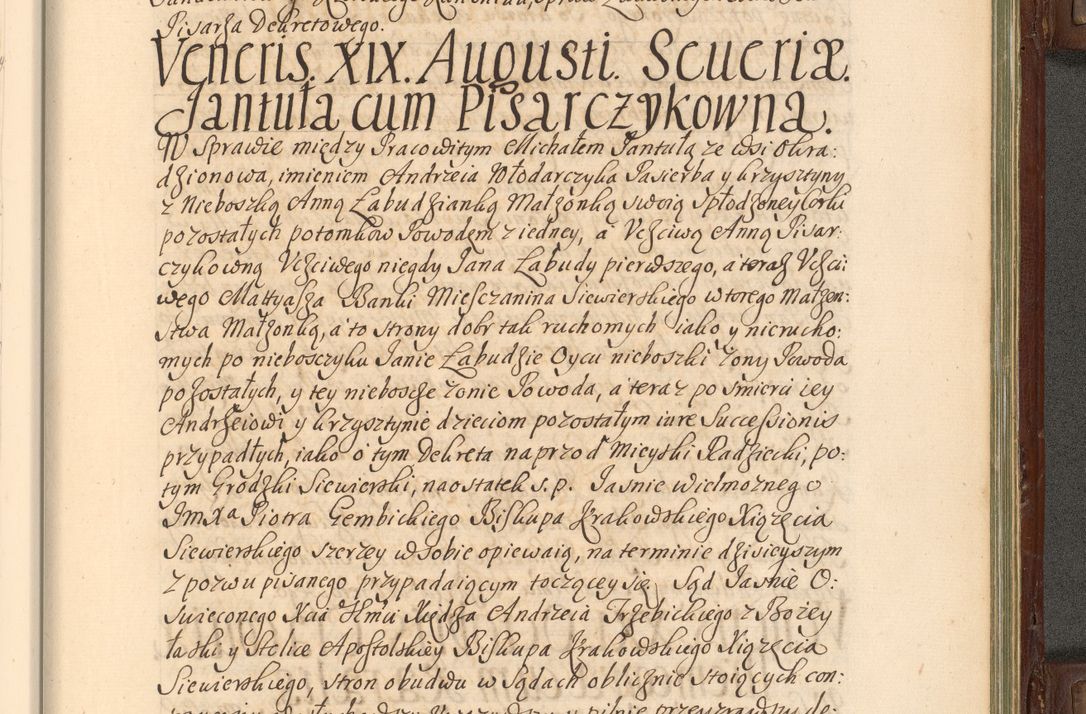 Pisarza Dekretowego.
Veneris. XIX. Augusti. Seueriæ.
Jantuła cum Pisarczykowna.
W Sprawie między Pracowitym Michałem Jantułą ze wsi Okra:
dzionowa, imieniem Andrzeia Włodarczyka Pasierba y krzysztyny
z Nieboszką Anną Łabudzianką Małżonką swoią Spłodzoney Corki
pozostałych potomkow Powodem z iedney, a Vczciwą Anną Pisar:
czykowną Vczciwego niegdy Jana Łabudy pierwszego, a teraz Vczci
wego Mattyasza Banki Miesczanina Siewierskiego wtorego Małżen:
stwa Małżonką, a to strony dobr tak ruchomych iako y nierucho:
mych po nieboszczyku Janie Łabudzie Oycu nieboszki Zony Powoda
pozostałych, y tey niebosce Zonie Powoda, a teraz po śmierci iey
Andrzeiowi y krzysztynie dzieciom pozostałym iure Successionis
przypadłych, iako o tym Dekreta naprzod Mieyski Radziecki, po:
tym Grodzki Siewierski, naostatek s. p. Jasnie wielmoznego
Jmxa Piotra Gembickiego Biskupa Krakowskiego Xiążęcia
Siewierskiego szerzey w sobie opiewaią, na terminie dzisieyszym
Z pozwu pisanego przypadaiącym toczącey się, Sąd Jasnie O:
swieconego Xcia Jmci Xiędza Andrzeia Trzebickiego z Bożey
łaski y Stolice Apostolskiey Biskupa Krakowskiego Xiążęcia
Siewierskiego, stron obudwu w Sądach oblicznie stoiących con: